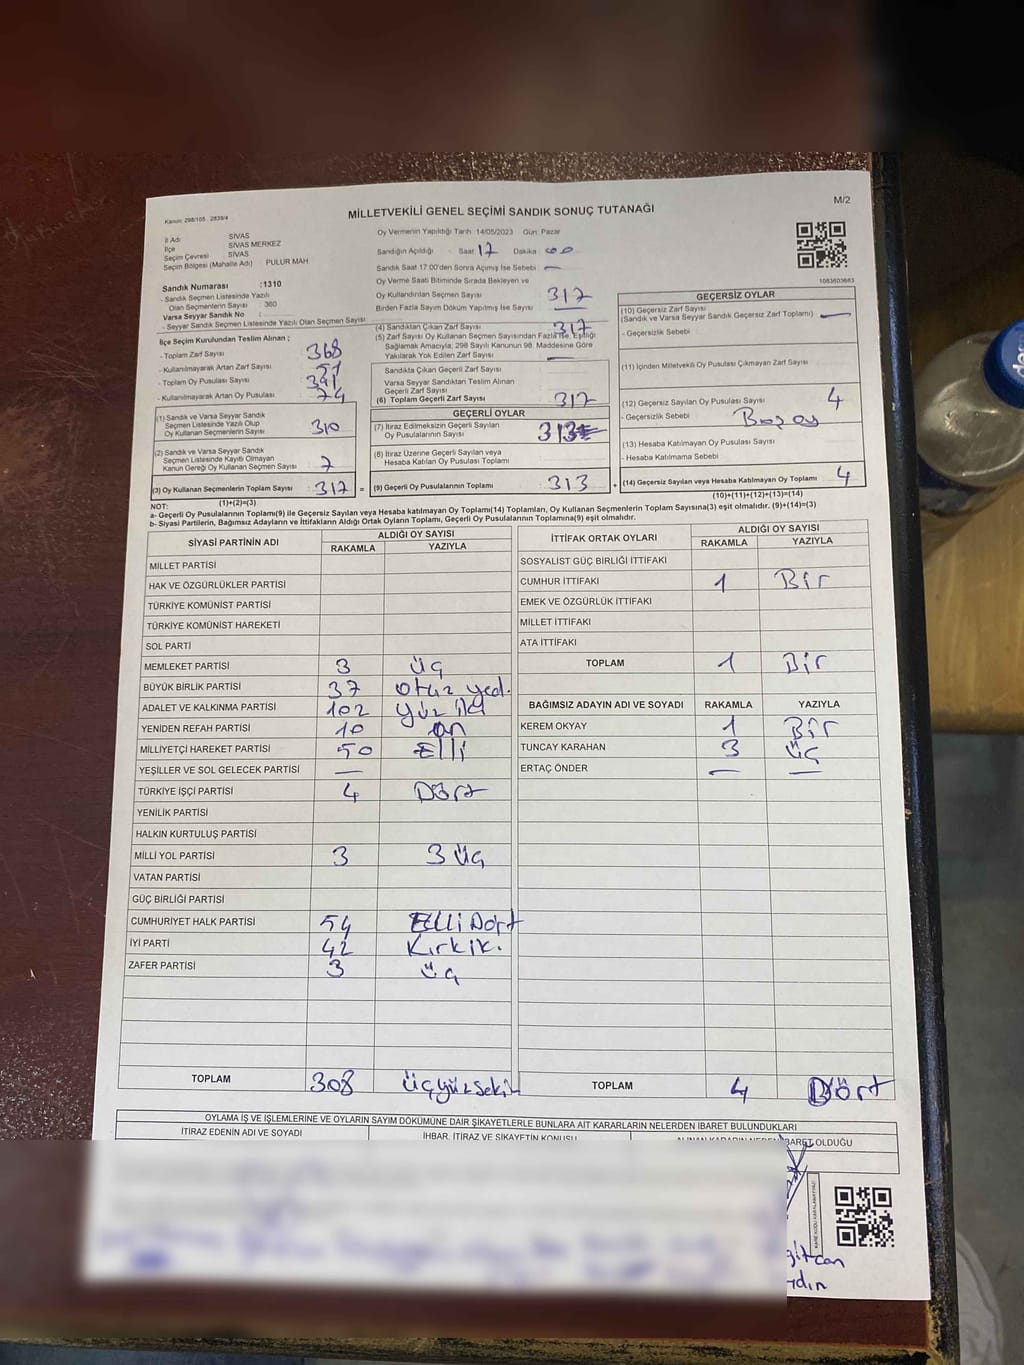 Kanun: 298/105 , 2839/4
MİLLETVEKİLİ GENEL SEÇİMİ SANDIK SONUÇ TUTANAĞI
M/2
İl Adı SİVAS
İlçe SİVAS MERKEZ
Seçim Çevresi SİVAS
Seçim Bölgesi (Mahalle Adı) PULUR MAH
Sandık Numarası :1310
- Sandık Seçmen Listesinde Yazılı
Olan Seçmenlerin Sayısı : 360
Varsa Seyyar Sandık No :
- Seyyar Sandık Seçmen Listesinde Yazılı Olan Seçmen Sayısı
İlçe Seçim Kurulundan Teslim Alınan ;
- Toplam Zarf Sayısı 368
- Kullanılmayarak Artan Zarf Sayısı 51
- Toplam Oy Pusulası Sayısı
- Kullanılmayarak Artan Oy Pusulası 74
(1) Sandık ve Varsa Seyyar Sandık
Seçmen Listesinde Yazılı Olup
Oy Kullanan Seçmenlerin Sayısı 310
(2) Sandık ve Varsa Seyyar Sandık
Seçmen Listesinde Kayıtlı Olmayan
Kanun Gereği Oy Kullanan Seçmen Sayısı 7
(3) Oy Kullanan Seçmenlerin Toplam Sayısı 317 =
(1)+(2)=(3)
Oy Vermenin Yapıldığı Tarih :14/05/2023 Gün: Pazar
Sandığın Açıldığı : Saat 17 Dakika : 00
Sandık Saat 17:00'den Sonra Açılmış İse Sebebi : —
Oy Verme Saati Bitiminde Sırada Bekleyen ve
Oy Kullandırılan Seçmen Sayısı 317
Birden Fazla Sayım Döküm Yapılmış İse Sayısı —
(4) Sandıktan Çıkan Zarf Sayısı 317
(5) Zarf Sayısı Oy Kullanan Seçmen Sayısından Fazla İse, Eşitliği
Sağlamak Amacıyla, 298 Sayılı Kanunun 98. Maddesine Göre
Yakılarak Yok Edilen Zarf Sayısı —
Sandıkta Çıkan Geçerli Zarf Sayısı
Varsa Seyyar Sandıktan Teslim Alınan
Geçerli Zarf Sayısı
(6) Toplam Geçerli Zarf Sayısı 317
GEÇERLİ OYLAR
(7) İtiraz Edilmeksizin Geçerli Sayılan
Oy Pusulalarının Sayısı 313
(8) İtiraz Üzerine Geçerli Sayılan veya
Hesaba Katılan Oy Pusulası Toplamı
(9) Geçerli Oy Pusulalarının Toplamı 313 +
1083603683
GEÇERSİZ OYLAR
(10) Geçersiz Zarf Sayısı
(Sandık ve Varsa Seyyar Sandık Geçersiz Zarf Toplamı) —
- Geçersizlik Sebebi :
(11) İçinden Milletvekili Oy Pusulası Çıkmayan Zarf Sayısı
(12) Geçersiz Sayılan Oy Pusulası Sayısı 4
- Geçersizlik Sebebi : Boş oy
(13) Hesaba Katılmayan Oy Pusulası Sayısı
- Hesaba Katılmama Sebebi
(14) Geçersiz Sayılan veya Hesaba Katılmayan Oy Toplamı 4
(10)+(11)+(12)+(13)=(14)
NOT:
a- Geçerli Oy Pusulalarının Toplamı(9) ile Geçersiz Sayılan veya Hesaba katılmayan Oy Toplamı(14) Toplamları, Oy Kullanan Seçmenlerin Toplam Sayısına(3) eşit olmalıdır. (9)+(14)=(3)
b- Siyasi Partilerin, Bağımsız Adayların ve İttifakların Aldığı Ortak Oyların Toplamı, Geçerli Oy Pusulalarının Toplamına(9) eşit olmalıdır.
SİYASİ PARTİNİN ADI ALDIĞI OY SAYISI
RAKAMLA YAZIYLA
MİLLET PARTİSİ
HAK VE ÖZGÜRLÜKLER PARTİSİ
TÜRKİYE KOMÜNİST PARTİSİ
TÜRKİYE KOMÜNİST HAREKETİ
SOL PARTİ
MEMLEKET PARTİSİ 3 üç
BÜYÜK BİRLİK PARTİSİ 37 otuz yedi
ADALET VE KALKINMA PARTİSİ 102 yüz iki
YENİDEN REFAH PARTİSİ 10 on
MİLLİYETÇİ HAREKET PARTİSİ 50 Elli
YEŞİLLER VE SOL GELECEK PARTİSİ —
TÜRKİYE İŞÇİ PARTİSİ 4 Dört
YENİLİK PARTİSİ
HALKIN KURTULUŞ PARTİSİ
MİLLİ YOL PARTİSİ 3 3 üç
VATAN PARTİSİ
GÜÇ BİRLİĞİ PARTİSİ
CUMHURİYET HALK PARTİSİ 54 Elli Dört
İYİ PARTİ 42 Kırk ik.
ZAFER PARTİSİ 3 üç
TOPLAM 308 üçyüzseki
İTTİFAK ORTAK OYLARI ALDIĞI OY SAYISI
RAKAMLA YAZIYLA
SOSYALİST GÜÇ BİRLİĞİ İTTİFAKI
CUMHUR İTTİFAKI 1 Bir
EMEK VE ÖZGÜRLÜK İTTİFAKI
MİLLET İTTİFAKI
ATA İTTİFAKI
TOPLAM 1 Bir
BAĞIMSIZ ADAYIN ADI VE SOYADI RAKAMLA YAZIYLA
KEREM OKYAY 1 Bir
TUNCAY KARAHAN 3 üç
ERTAÇ ÖNDER — —
TOPLAM 4 Dört
OYLAMA İŞ VE İŞLEMLERİNE VE OYLARIN SAYIM DÖKÜMÜNE DAİR ŞİKAYETLERLE BUNLARA AİT KARARLARIN NELERDEN İBARET BULUNDUKLARI
İTİRAZ EDENİN ADI VE SOYADI İHBAR, İTİRAZ VE ŞİKAYETİN KONUSU ALINAN KARARIN NEDEN İBARET OLDUĞU